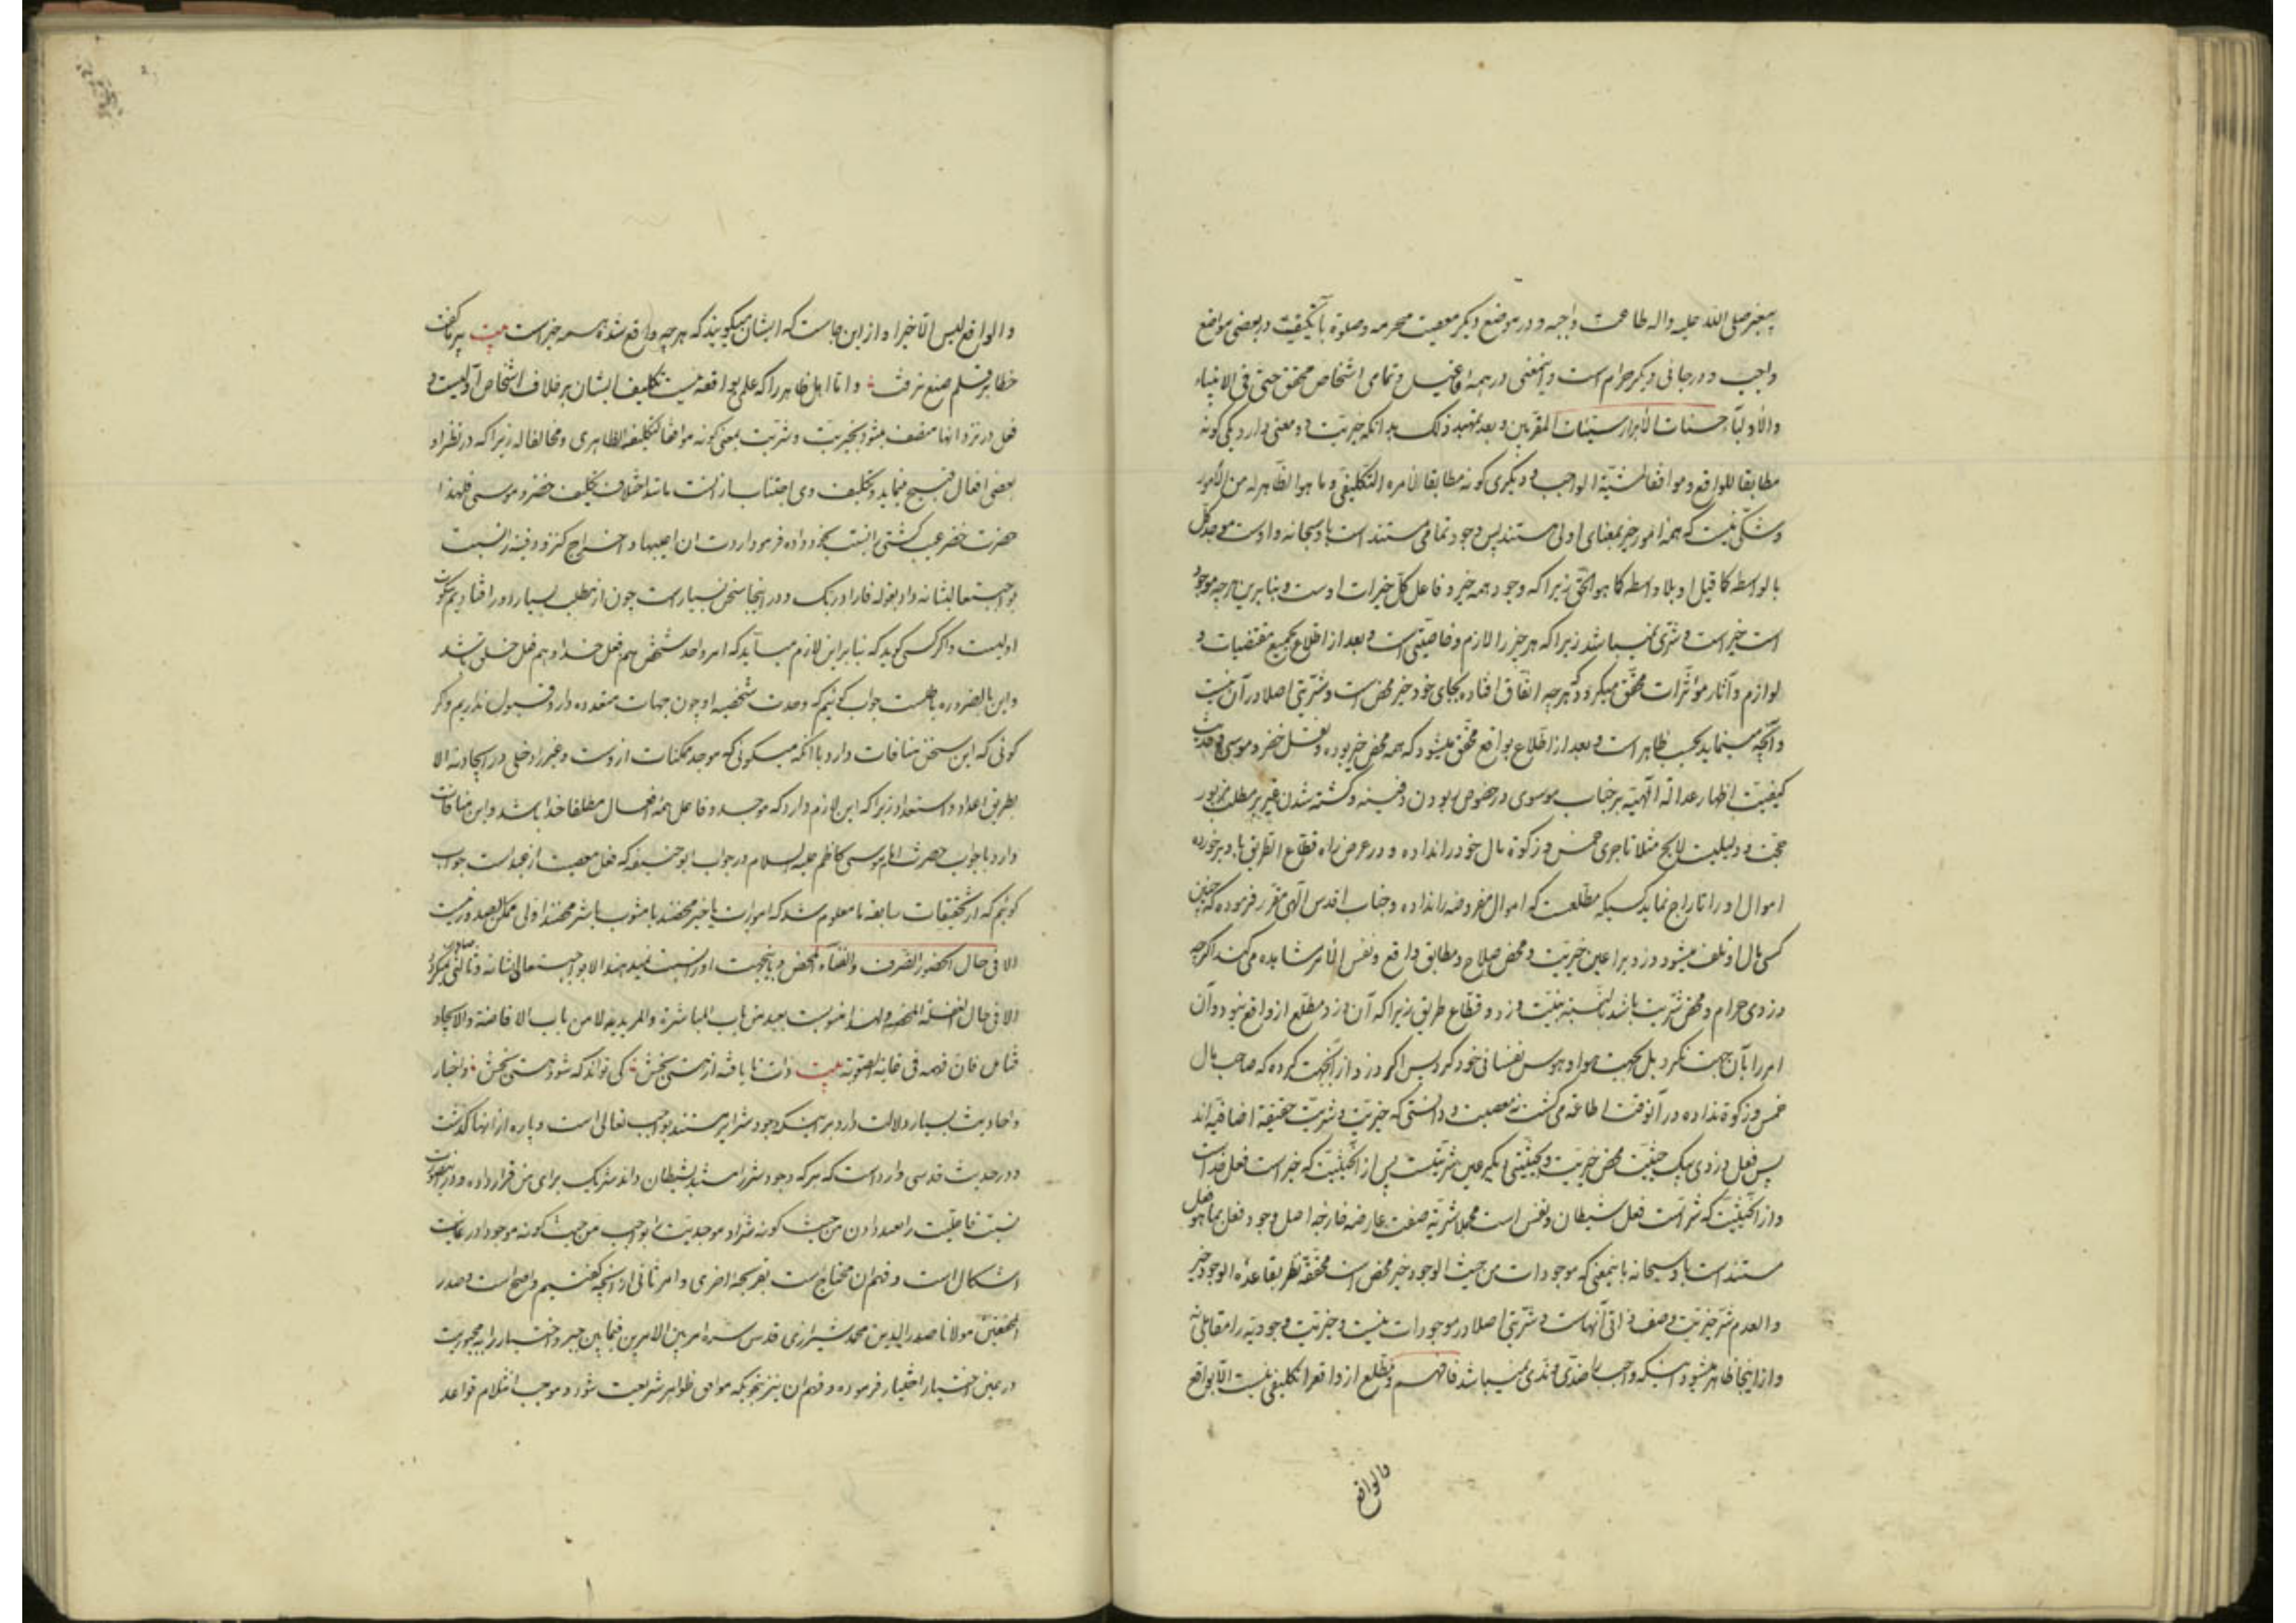 پیغمبر صلی الله علیه واله طاعت واجبه و در موضع دیگر معصیت محرمه وصلوة با کیفیت در بعضی مواضع
واجب و در جائی دیگر حرام است و اینمعنی در همه افاعیل و تمامی اشخاص محقق حتی فی الانبیاء
والاولیآء حسنات الابرار سیئات المقربین و بعد تمهید ذلک بدانکه خیریت دو معنی دارد یکی کونه
مطابقا للواقع و موافقا لمشیة الواجب و دیگری کونه مطابقا لامره التکلیفی و ما هوا لظاهر له من الامور
وشکی نیست که همه امور خیر بمعنای اولی هستند پس وجود تمامی مستند است باو سبحانه و اوست موجد کل
بالواسطه کما قیل او بلا واسطه کما هو الحق زیرا که وجود همه خیر و فاعل کل خیرات اوست و بنابرین هرچه موجود
است خیر است و شری نمیباشد زیرا که هر چیز را لازم و خاصیتی است و بعد از اطلاع بجمیع مقتضیات و
لوازم و آثار مؤثرات محقق میگردد که هرچه اتفاق افتاده بجای خود خیر محض است و شریتی اصلا در آن نیست
و آنچه مینماید بحسب ظاهر است و بعد از اطلاع بواقع محقق میشود که همه محض خیر بوده و نقل خضر و موسی و حدیث
کیفیت اظهار عدالة الهیه بر جناب موسوی در خصوص ربودن دفینه و کشته شدن غیر بر مطلب مزبور
حجت و دلیلیست لایح مثلا تاجری خمس و زکوة مال خود را نداده و در عرض راه قطاع الطریق باو برخورده
اموال او را تاراج نماید کسیکه مطلعست که اموال مفروضه را نداده و جناب اقدس الهی مقرر فرموده که چنین
کسی مال او تلف میشود دزد برا عین خیریت و محض صلاح و مطابق واقع و نفس الامر مشاهده می کند اگرچه
دزدی حرام و محض شریت باشد لنسبته بنیت دزد و قطاع طریق زیرا که آن دزد مطلع از واقع نبود و آن
امر را بآن جهت نکرد بل بجهت هوا و هوس نفسانی خود کرد پس اگر دزد از آنجهت کرده که صاحب مال
خمس و زکوة نداده در آنوقت اطاعه می گشت نه معصیت و دانستی که خیریت و شریت حقیقة اضافیه اند
پس فعل دزدی بیک حیثیت محض خیریت و بحیثیتی دیگر عین شریتست پس از آنحیثیت که خیر است فعل خداست
و از آنحیثیت که شر است فعل شیطان و نفس است مجملا شریة صفت عارضه خارجه اصل وجود فعل بما هو فعل
مستند است باو سبحانه باینمعنی که موجودات من حیث الوجود خیر محض است محققه نظر بقاعده الوجود خیر
والعدم شر خیریت وصف ذاتی آنهاست و شریتی اصلا در موجودات نیست و خیریت وجودیه را مقابلی نه
و از اینجا ظاهر میشود اینکه واجب را ضدی و ندی نمیباشد فافهم و مطلع از واقع را تکلیفی نیست الا بواقع
والواقع
والواقع لیس الا خیرا و از این جاست که ایشان میگویند که هرچه واقع شده همه خیر است بیت پیر ما گفت
خطا بر قلم صنع نرفت و اما اهل ظاهر را که علم بواقعه نیست تکلیف ایشان بر خلاف اشخاص اولیست و
فعل در نزد انها متصف میشود بخیریت و شریت بمعنی کونه موافقا لتکلیفه الظاهری و مخالفا له زیرا که در نظر او
بعضی افعال قبیح مینماید و تکلیف وی اجتناب از انست مانند اختلاف تکلیف خضر و موسی فلهذا
حضرت خضر عیب کشتی را نسبت بخود داده فرمود اردت ان اعیبها و اخراج کنز و دفینه را نسبت
بواجب تعالیشانه داد بقوله فاراد ربک و در اینجا سخن بسیار است چون از مطلب بسیار دور افتادیم سکوت
اولیست و اگر کسی گوید که بنابر این لازم میآید که امر واحد شخصی هم فعل خدا و هم فعل خلق باشد
و این بالضروره باطلست جواب گوئیم که وحدت شخصیه او چون جهات متعدده دارد قبول نداریم و اگر
گوئی که این سخن منافات دارد با آنکه میگوئی که موجد ممکنات ازوست و غیر را دخلی در ایجاد نه الا
بطریق اعداد و استعداد زیرا که این لازم دارد که موجد و فاعل همه افعال مطلقا خدا باشد و این منافات
دارد با جواب حضرت امام موسی کاظم علیه السلام در جواب ابو حنیفه که فعل معصیت از عبد است جواب
گوئیم که از تحقیقات سابقه ما معلوم شد که امورات یا خیر محضند یا مشوب یا شر محضند اولی ممکن الصدور نیست
الا فی حال الحضور الصرف والفناء المحض و باینجهت او را نسبت نمیدهند الا بواجب تعالی شانه و ثالثی صادر نمیگردد
الا فی حال الغفلة المحضة ولهذا منسوبست بعبد من باب المباشرة والمربدیه لا من باب الافاضة والایجاد
فتامل فان فهمه فی غایة الصعوبة بیت ذات نا یافته از هستی بخش کی تواند که شود هستی بخش و اخبار
و احادیث بسیار دلالت دارد بر اینکه وجود شرایر مستند بواجب تعالی است و پاره از انها گذشت
و در حدیث قدسی وارد است که هر که وجود شر را مستند بشیطان داند شریک برای من قرار داده و در اینصورت
نسبت فاعلیت را بعبد دادن من حیث کونه شرا و موجدیت را بواجب من حیث کونه موجودا در غایت
اشکال است و فهم ان محتاج است بقریحة اخری و امر ثانی از آنچه گفتیم واضح است و صدر
المحققین مولانا صدر الدین محمد شیرازی قدس سره امر بین الامرین فیما بین جبر و اختیار را به مجبوریت
در عین اختیار اختیار فرموده و فهم ان نیز بنحویکه موافق ظواهر شریعت شود و موجب انثلام قواعد